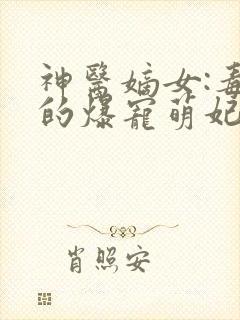 神醫嫡女:毒
的爆寵萌妃
肖照安